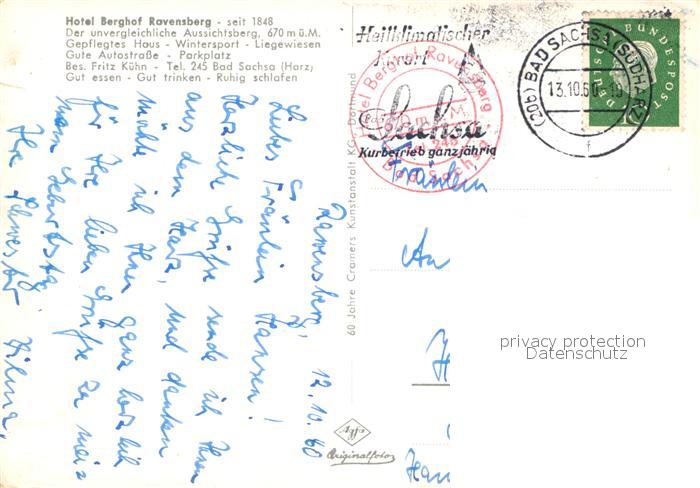 Hotel Berghof Ravensberg - seit 1848
Der unvergleichliche Aussichtsberg, 670 m ü.M.
Gepflegtes Haus - Wintersport - Liegewiesen
Gute Autostraße - Parkplatz
Bes. Fritz Kühn - Tel. 245 Bad Sachsa (Harz)
Gut essen - Gut trinken - Ruhig schlafen
Ravensberg,
12.10.60
Liebes Fräulein Hansen!
Herzliche Grüße sende ich Ihnen
aus dem Harz, und danken
möchte ich Ihnen ganz herzlich
für Ihre lieben Grüße zu mein
Geburtstag.
Ihre Schwester Wilma.
60 Jahre Cramers Kunstanstalt KG, Dortmund
Heilklimatischer
Kurort
Bad
Sachsa
Kurbetrieb ganzjährig
Hotel Berghof Ravensberg
Bad Sachsa
(20b) BAD SACHSA (SÜDHARZ)
13.10.60
f
DEUTSCHE BUNDESPOST
Fräulein
An
H
Han
Agfa
Originalfoto
privacy protection
Datenschutz